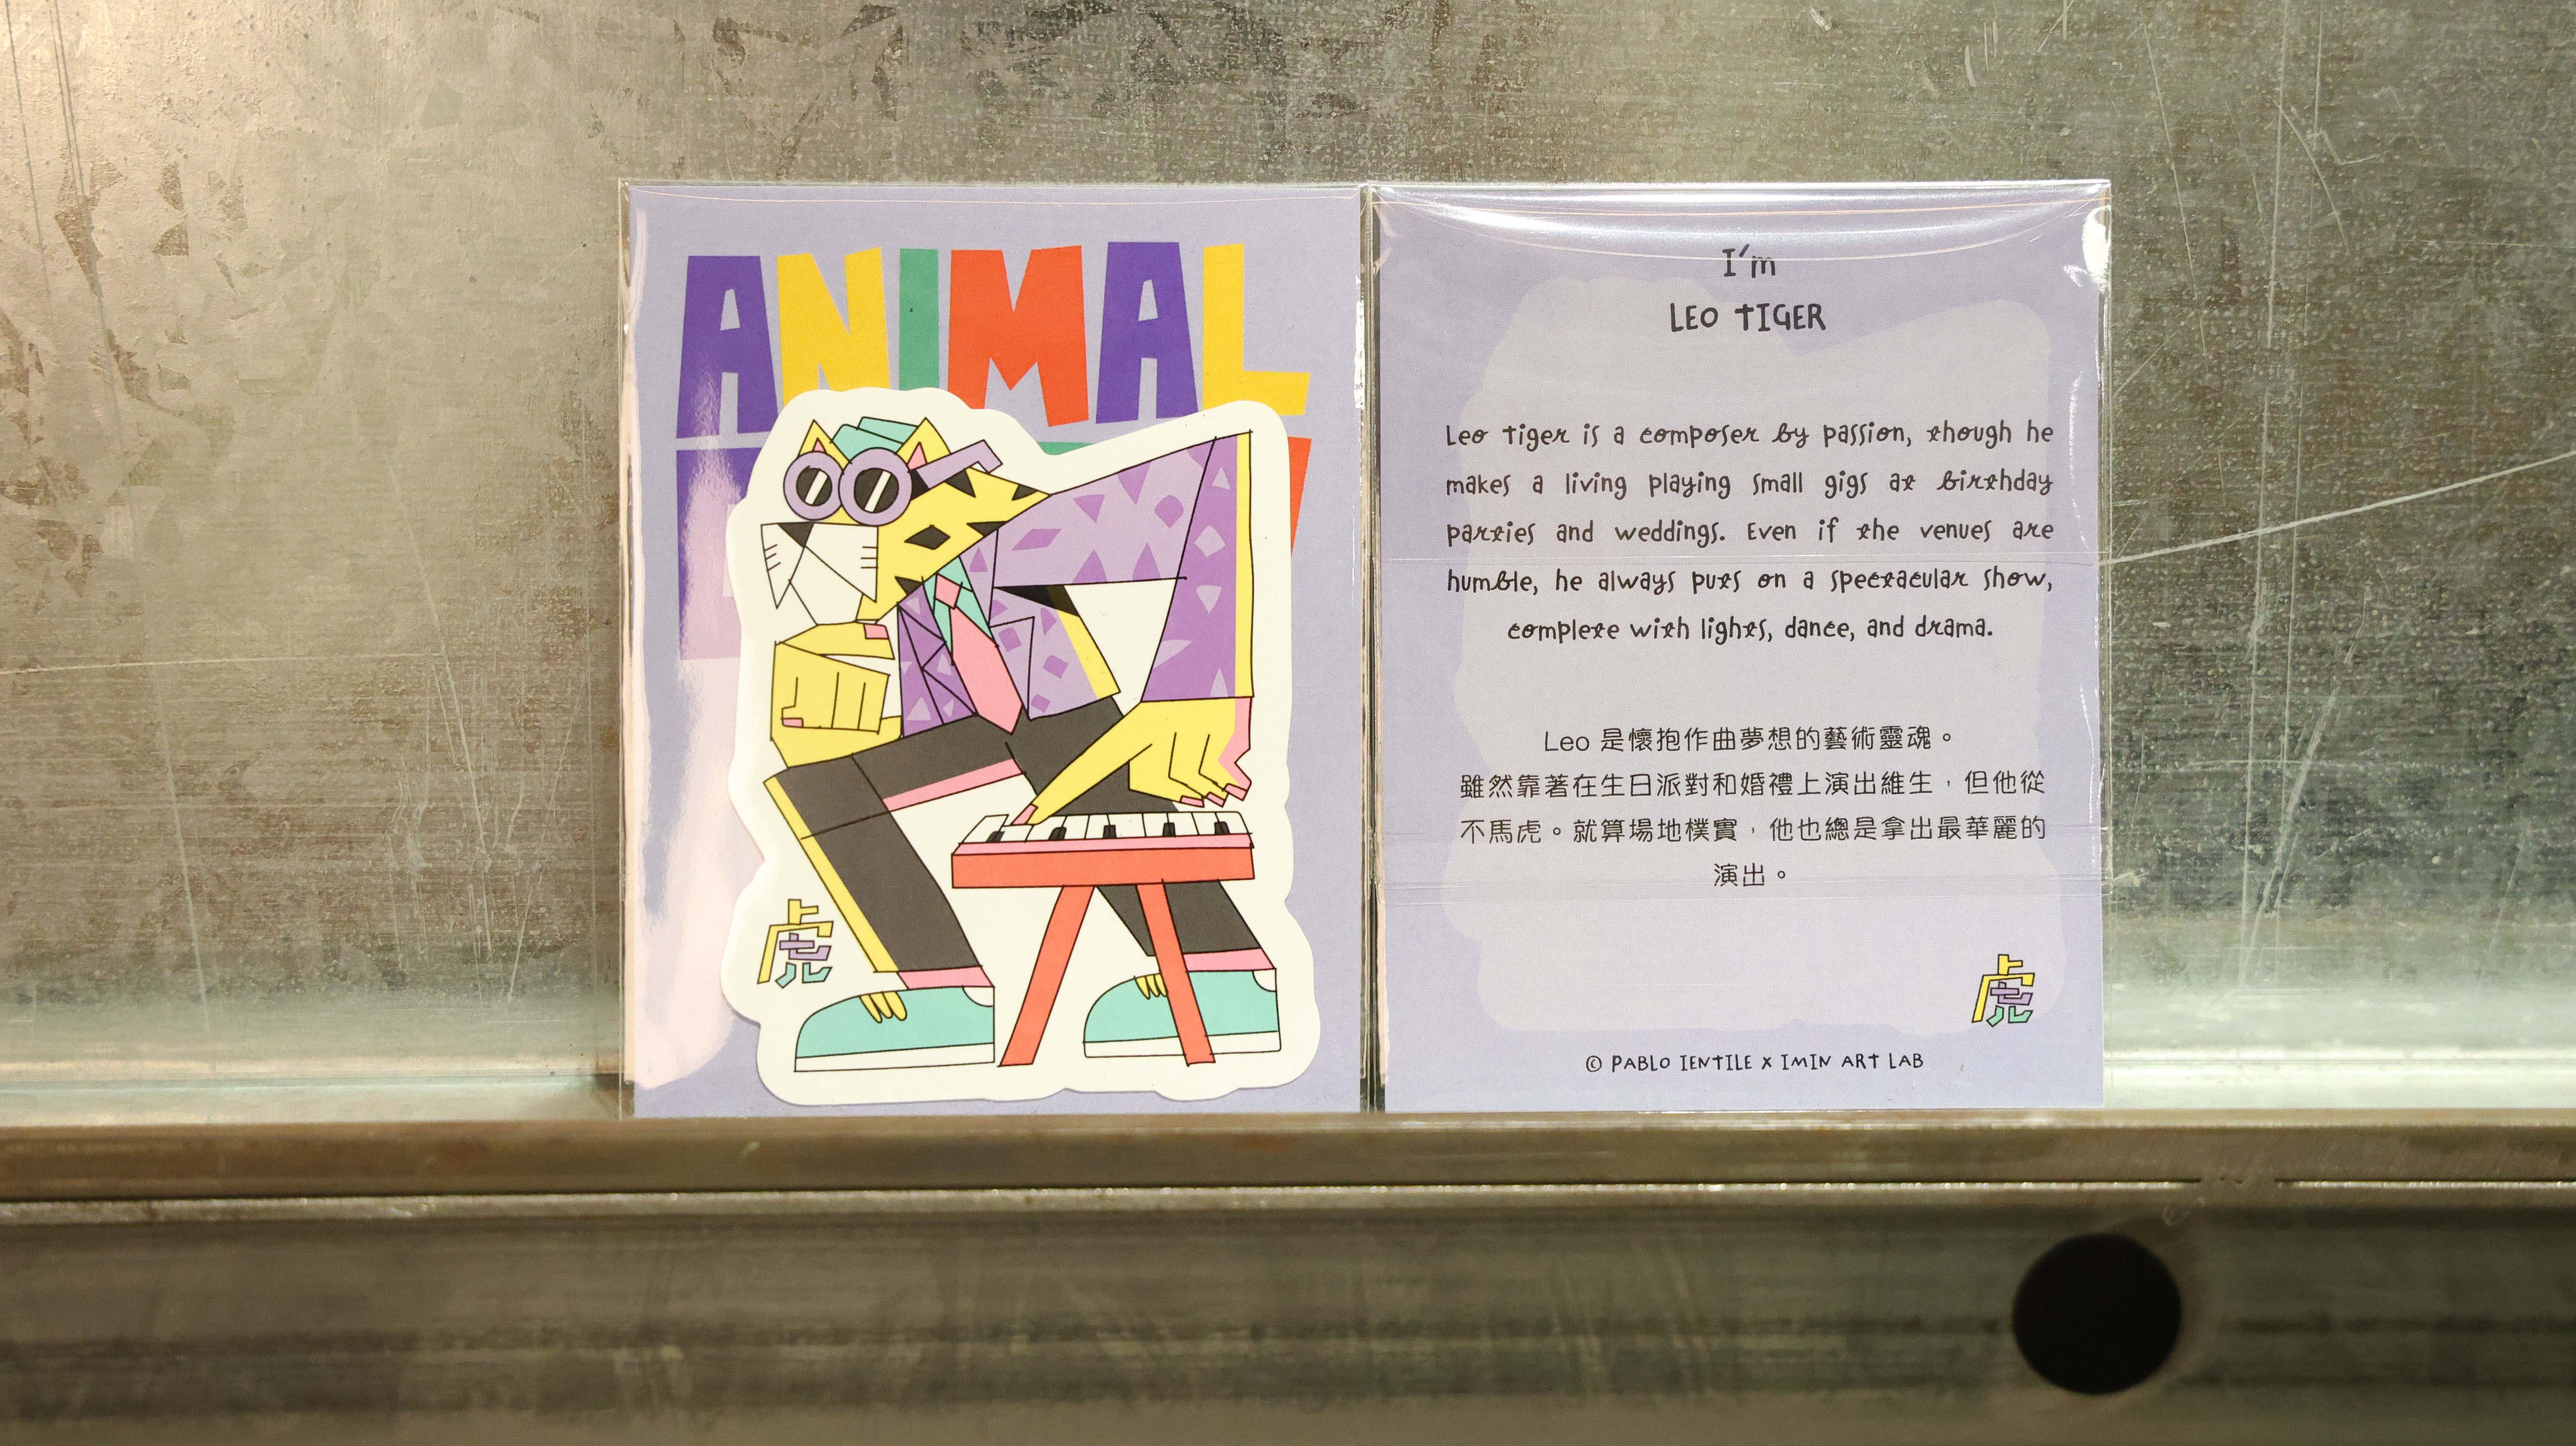 ANIMAL
虎
I'm
LEO TIGER
Leo tiger is a composer by passion, though he
makes a living playing small gigs at birthday
parties and weddings. Even if the venues are
humble, he always puts on a spectacular show,
complete with lights, dance, and drama.
Leo 是懷抱作曲夢想的藝術靈魂。
雖然靠著在生日派對和婚禮上演出維生,但他從
不馬虎。就算場地樸實,他也總是拿出最華麗的
演出。
虎
© PABLO IENTILE X IMIN ART LAB